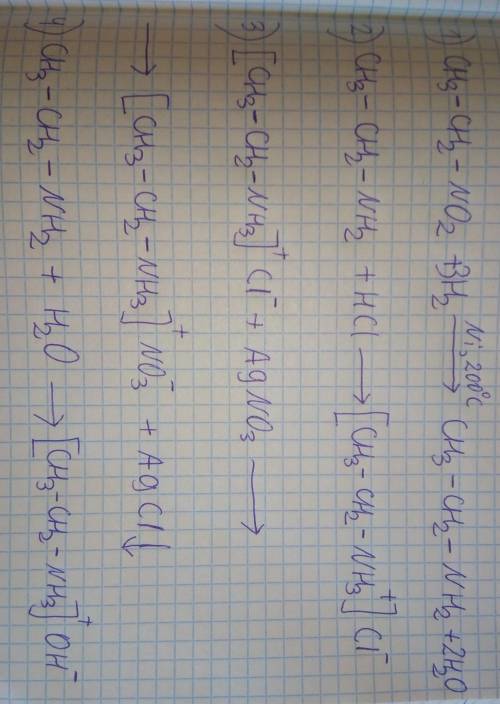 1) CH₃–CH₂–NO₂ + 3H₂ —Ni, 200°C→ CH₃–CH₂–NH₂ + 2H₂O
2) CH₃–CH₂–NH₂ + HCl ⟶ [CH₃–CH₂–NH₃]⁺Cl⁻
3) [CH₃–CH₂–NH₃]⁺Cl⁻ + AgNO₃ ⟶
⟶ [CH₃–CH₂–NH₃]⁺NO₃⁻ + AgCl↓
4) CH₃–CH₂–NH₂ + H₂O ⟶ [CH₃–CH₂–NH₃]⁺OH⁻